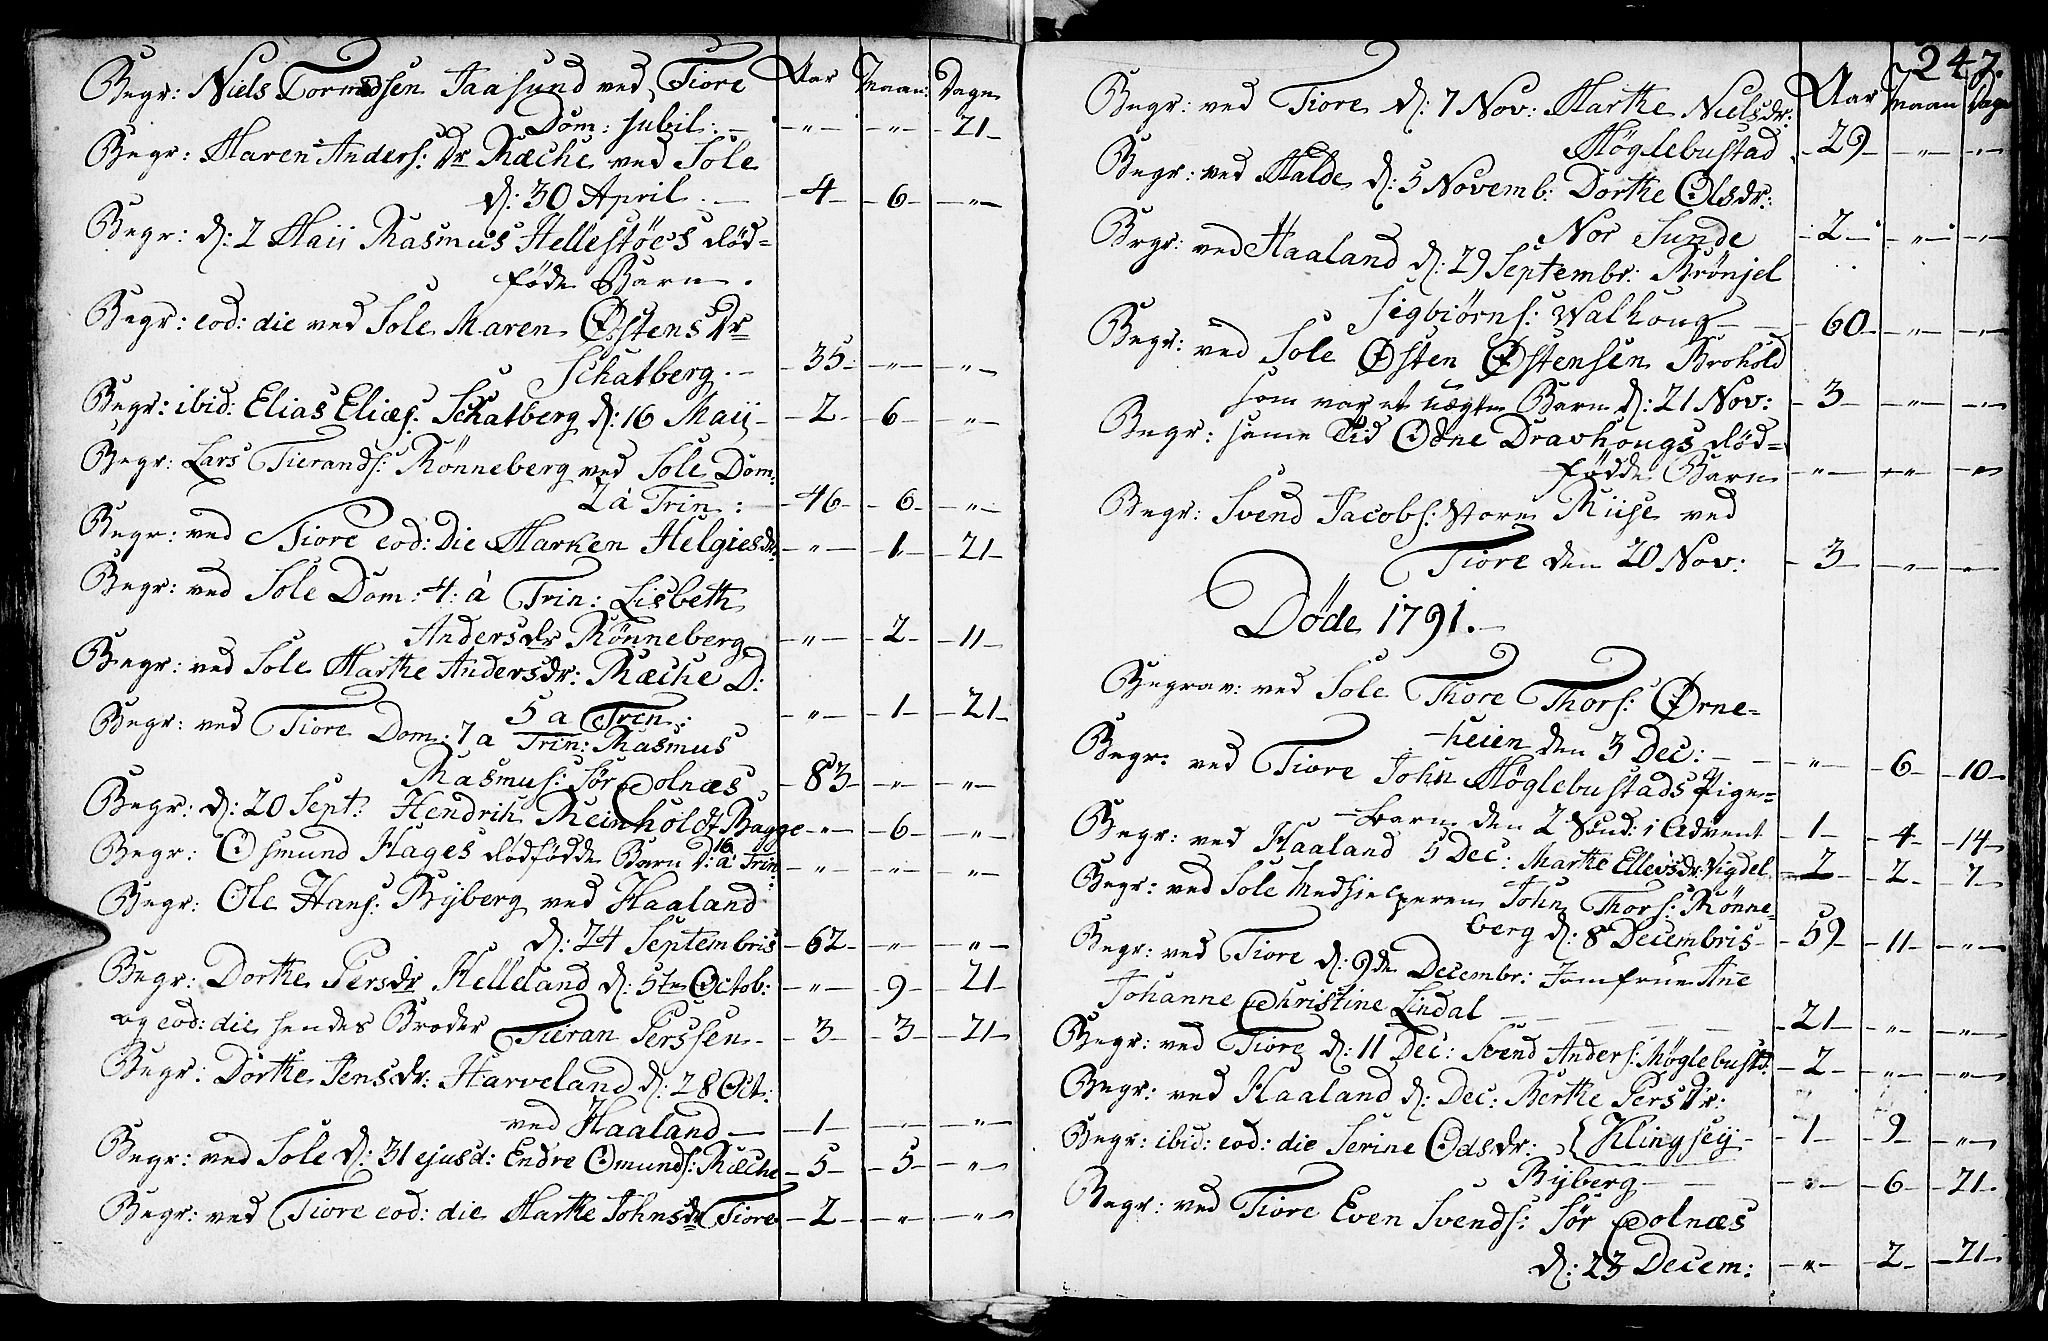 Aar Maan: Dage
Begr: Niels Tormodsen Jaasund ved Tiore
Dom: Jubil: - -"- -"- -21-
Begr: Maren Anders: Dr Ræche ved Sole
d: 30 April. - -4- -6- -"-
Begr: d: 2 Maij Rasmus Hellestöe's död-
föde Barn.
Begr: eod: die ved Sole Maren Østens Dr
Schatberg. - -35- -"- -"-
Begr: ibid: Elias Eliæs: Schatberg d: 16 Maij - -2- -6- -"-
Begr: Lars Tierands: Rönneberg ved Sole Dom:
2 à Trin: -46- -6- -"-
Begr: ved Tiore eod: Die Marken Helgiesdr: -"- -1- -21-
Begr: ved Sole Dom: 4: à Trin: Lisbeth
Andersdr Rönneberg -"- -2- -11-
Begr: ved Sole Marthe Andersdr: Ræche D:
5 a Trin: -"- -1- -21-
Begr: ved Tiore Dom: 7 a Trin: Rasmus
Rasmus: Sör Colnæs -83- -"- -"-
Begr: d: 20 Sept: Hendrik Reinholdt Bagge -"- -6- -"-
Begr: Osmund Hages dödfödde Barn D: 16 à Trin: -"- -"- -"-
Begr: Ole Hans: Byberg ved Haaland
d: 24 Septembris -62- -"- -"-
Begr: Dorthe Persdr Helleland d: 5te Octob: -"- -9- -21-
og eod: die hendes Broder Tieran Perssen -3- -3- -21-
Begr: Dorthe Jensdr: Harveland d: 28 Oct:
ved Haaland - -1- -"- -"-
Begr: ved Sole d: 31 ejusd: Endre Omunds: Ræche -5- -5- -"-
Begr: ved Tiore eod: die Marthe Johnsdr Tiore -2- -"- -"-
247.
Aar Maan Dage
Begr: ved Tiore d: 7 Nov: Marthe Nielsdr:
Höglebustad -29- -"- -"-
Begr: ved Malde d: 5 Novemb: Dorthe Olsdr:
Nor Sunde -2- -"- -"-
Begr: ved Haaland d: 29 Septembr: Brönjel
Sigbiörns: Walhoug - -60- -"- -"-
Begr: ved Sole Østen Østensen Brohold
som var et uægte Barn d: 21 Nov: -3- -"- -"-
Begr: same Tid Odne Dravhougs död-
födde Barn -"- -"- -"-
Begr: Svend Jacobs: Store Riise ved
Tiore den 20 Nov: -3- -"- -"-
Döde 1791.
Begrav: ved Sole Thore Thors: Ørne-
heien den 3 Dec: -"- -6- -10-
Begr: ved Tiore John Höglebustads Pige-
-barn den 2 Sönd: i Advent -1- -4- -14-
Begr: ved Haaland 5 Dec: Marthe Ellevsdr: Vigdel -2- -2- -7-
Begr: ved Sole Medhielperen John Thors: Rönne-
berg d: 8de Decembris -59- -11- -"-
Begr: ved Tiore d: 9de Decembr: Jomfrue Ane
Johanne Christine Lindal - -21- -"- -"-
Begr: ved Tiore d: 11 Dec: Svend Anders: Höglebustd: -2- -"- -"-
Begr: ved Haaland d: Dec: Berthe Pers Dr:
Klingsey -1- -9- -"-
Begr: ibid: eod: die Serine Odsdr:
Byberg - -"- -6- -21-
Begr: ved Tiore Even Svends: Sör Colnæs
d: 23 Decem: -"- -2- -21-